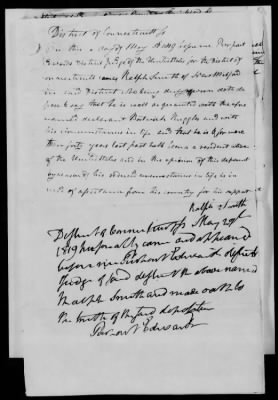 District of Connecticut ss
On this day of May 1819 before me Pierpont
Edwards District Judge of the United States for the District of
Connecticut came Ralph Smith of New Milford
in said District who being duly sworn doth de
pose & say that he is well acquainted with the afore
named declarant Nathaniel Ruggles and with
his circumstances in life and that he is & for more
than forty years last past hath been a resident citizen
of the United States and in the opinion of this deponent
by reason of his reduced circumstances in life is in
need of assistance from his country for his support
Ralph Smith
District of Connecticut ss May 29th
1819 personally came and appeared
before me Pierpont Edwards district
Judge of said district the above named
Ralph Smith and made oath to
the truth of the foregoing deposition
Pierpont Edwards